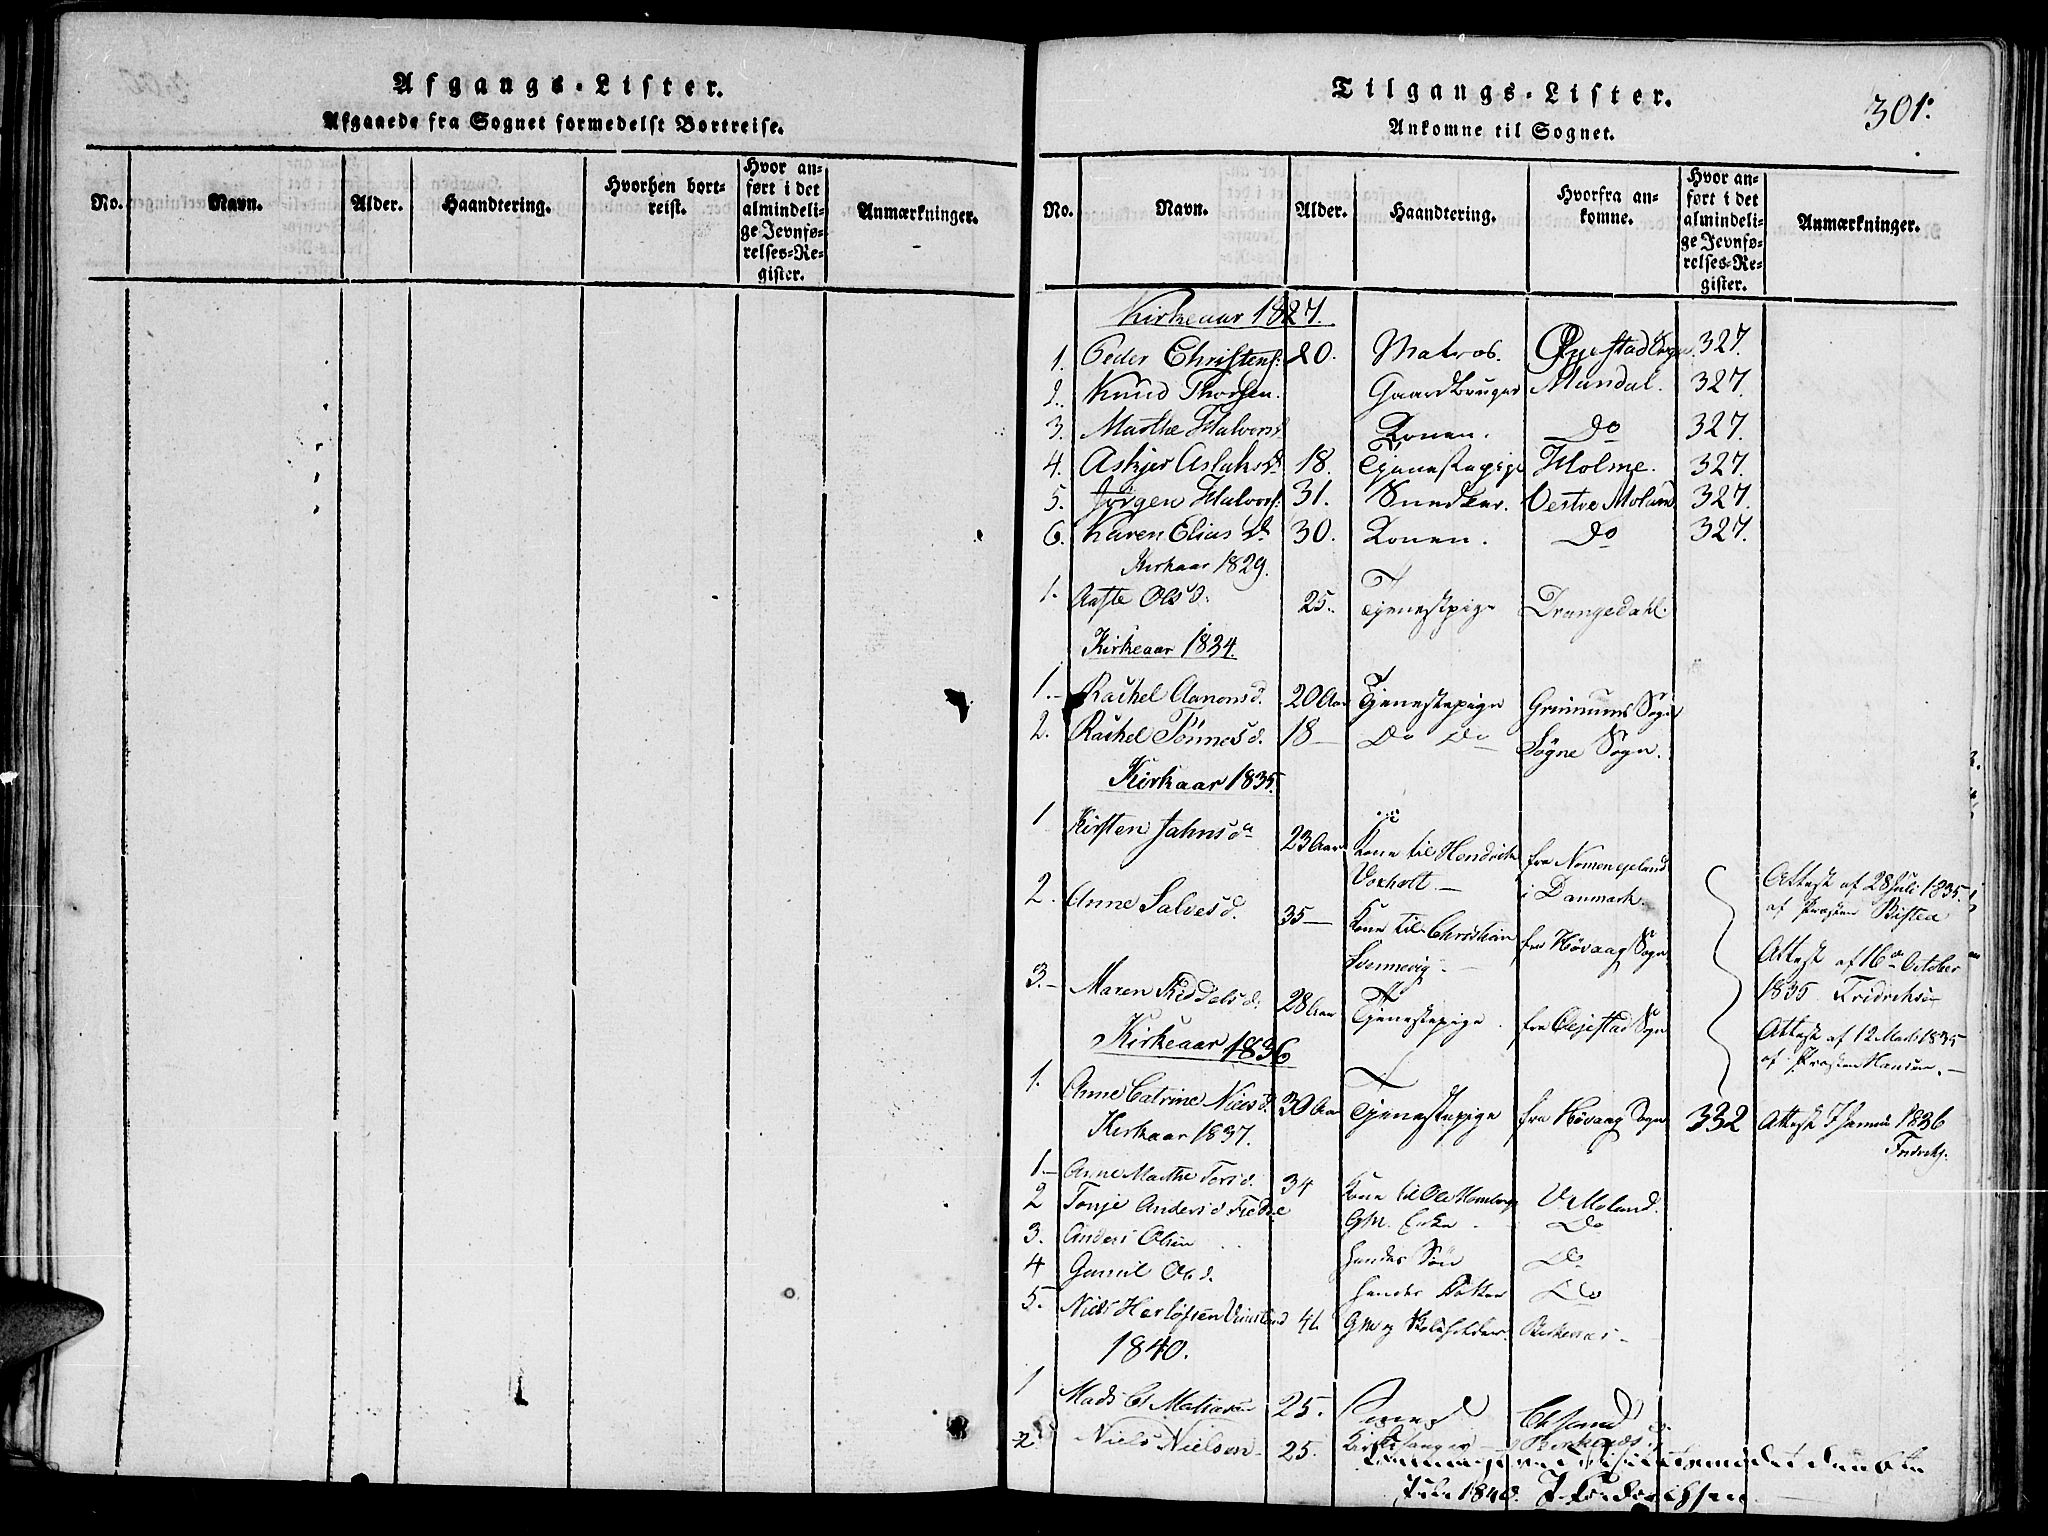 Afgangs-Lister.
Afgaaede fra Sognet formedelst Bortreise.
No.
Navn.
Alder.
Haandtering.
Hvorhen bort-
reist.
Hvor an-
ført i det
almindeli-
ge Jevnfø-
relses-Re-
gister.
Anmærkninger.
Tilgangs-Lister.
301.
Ankomne til Sognet.
No.
Navn.
Alder.
Haandtering.
Hvorfra an-
komne.
Hvor an-
ført i det
almindeli-
ge Jevnfø-
relses-Re-
gister.
Anmærkninger.
Kirkeaar 1827.
1. Peder Christens: 20. Matros. Øyestad Sogn. 327.
2. Knud Thorsen. Gaardbruger Mandal. 327.
3. Marthe Halvors Konen. Do 327.
4. Askjer Aslaks D. 18. Tjenestepige Holme. 327.
5. Jørgen Halvors: 31. Snedker. Vestre Moland 327.
6. Karen Elias D. 30. Konen. Do 327.
Kirkaar 1829.
1. Aaste Ols d. 25. Tjenestpige Drangedahl.
Kirkeaar 1834.
1. Rachel Aanonsd. 20 Aar Tjenestepige Sogn
2. Rachel Tønnesd. 18 — Do Do Søgne Sogn.
Kirkaar 1835.
1 Kirsten Jahnsd 23 Aar Kone til Hendrik fra
Voxholt. — i Danmark.
Attest af 28 Juli 1835
af Præsten
2. Anne Salvesd. 35 — Kone til Christian fra Høvaag Sogn
Svennevig. —
Attest af 16 October
1835 Fridrichsen
3. Maren d. 28 Aar Tjenestepige. fra Øiestad Sogn
Attest af 12 Marts 1835
af Præsten Hansen. —
Kirkeaar 1836
1. Anne Catrine Nielsd. 30 Aar Tjenestepige fra Høvaag Sogn 332 Attest 7 Januar 1836
Fridrichs.
Kirkaar 1837.
1. Anne Marthe Torsd. 34 Kone til Ole V. Moland.
2 Tonje Andersd Gm. Enke. Do
3. Anders Olsen hendes Søn Do
4 Gunnil Olsd. hendes Datter Do
5. Niels 41. Gm og Birkenæs —
1840.
1 Mads 25. Chsand
2 Niels Nielsen 25. Kirkesanger Birkenæs
den 8de
Juli 1840. Fredrichsen